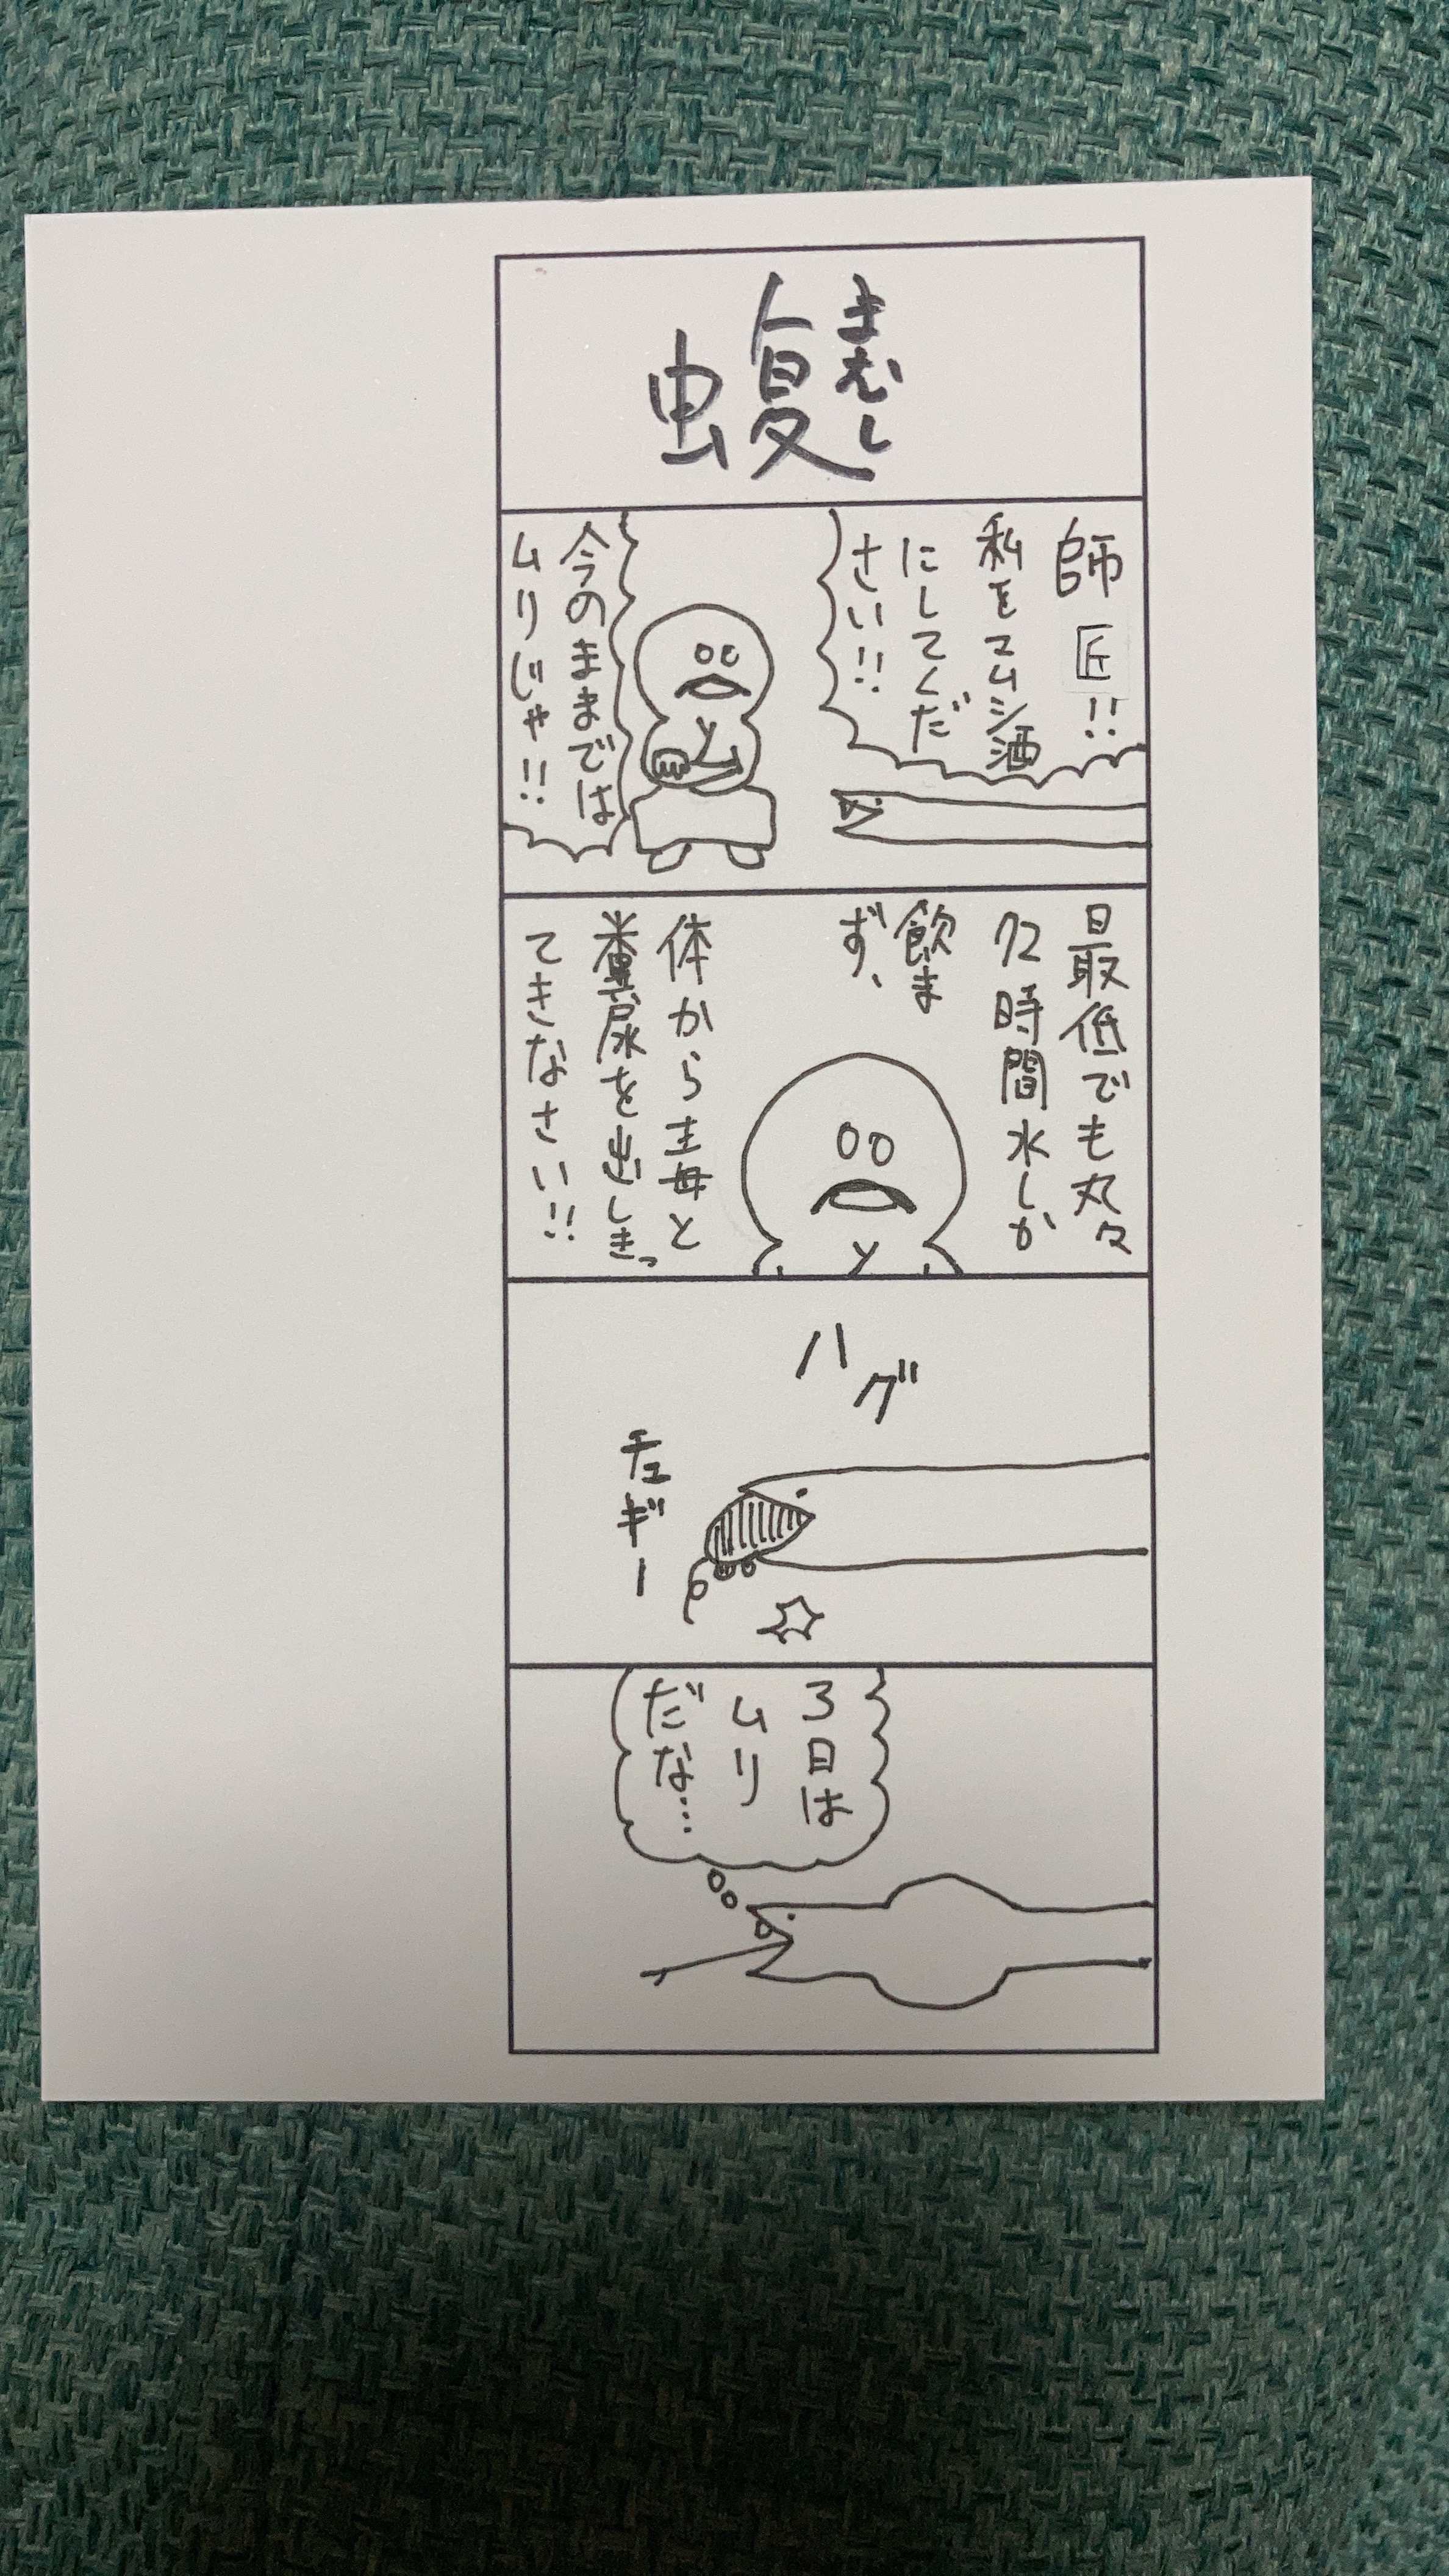 蝮
まむし
師匠!!
私をマムシ酒
にしてくだ
さい!!
今のままでは
ムリじゃ!!
最低でも丸々
72時間水しか
飲ま
ず、
体から毒と
糞尿を出しきっ
てきなさい!!
ハグ
チュギー
3日は
ムリ
だな…